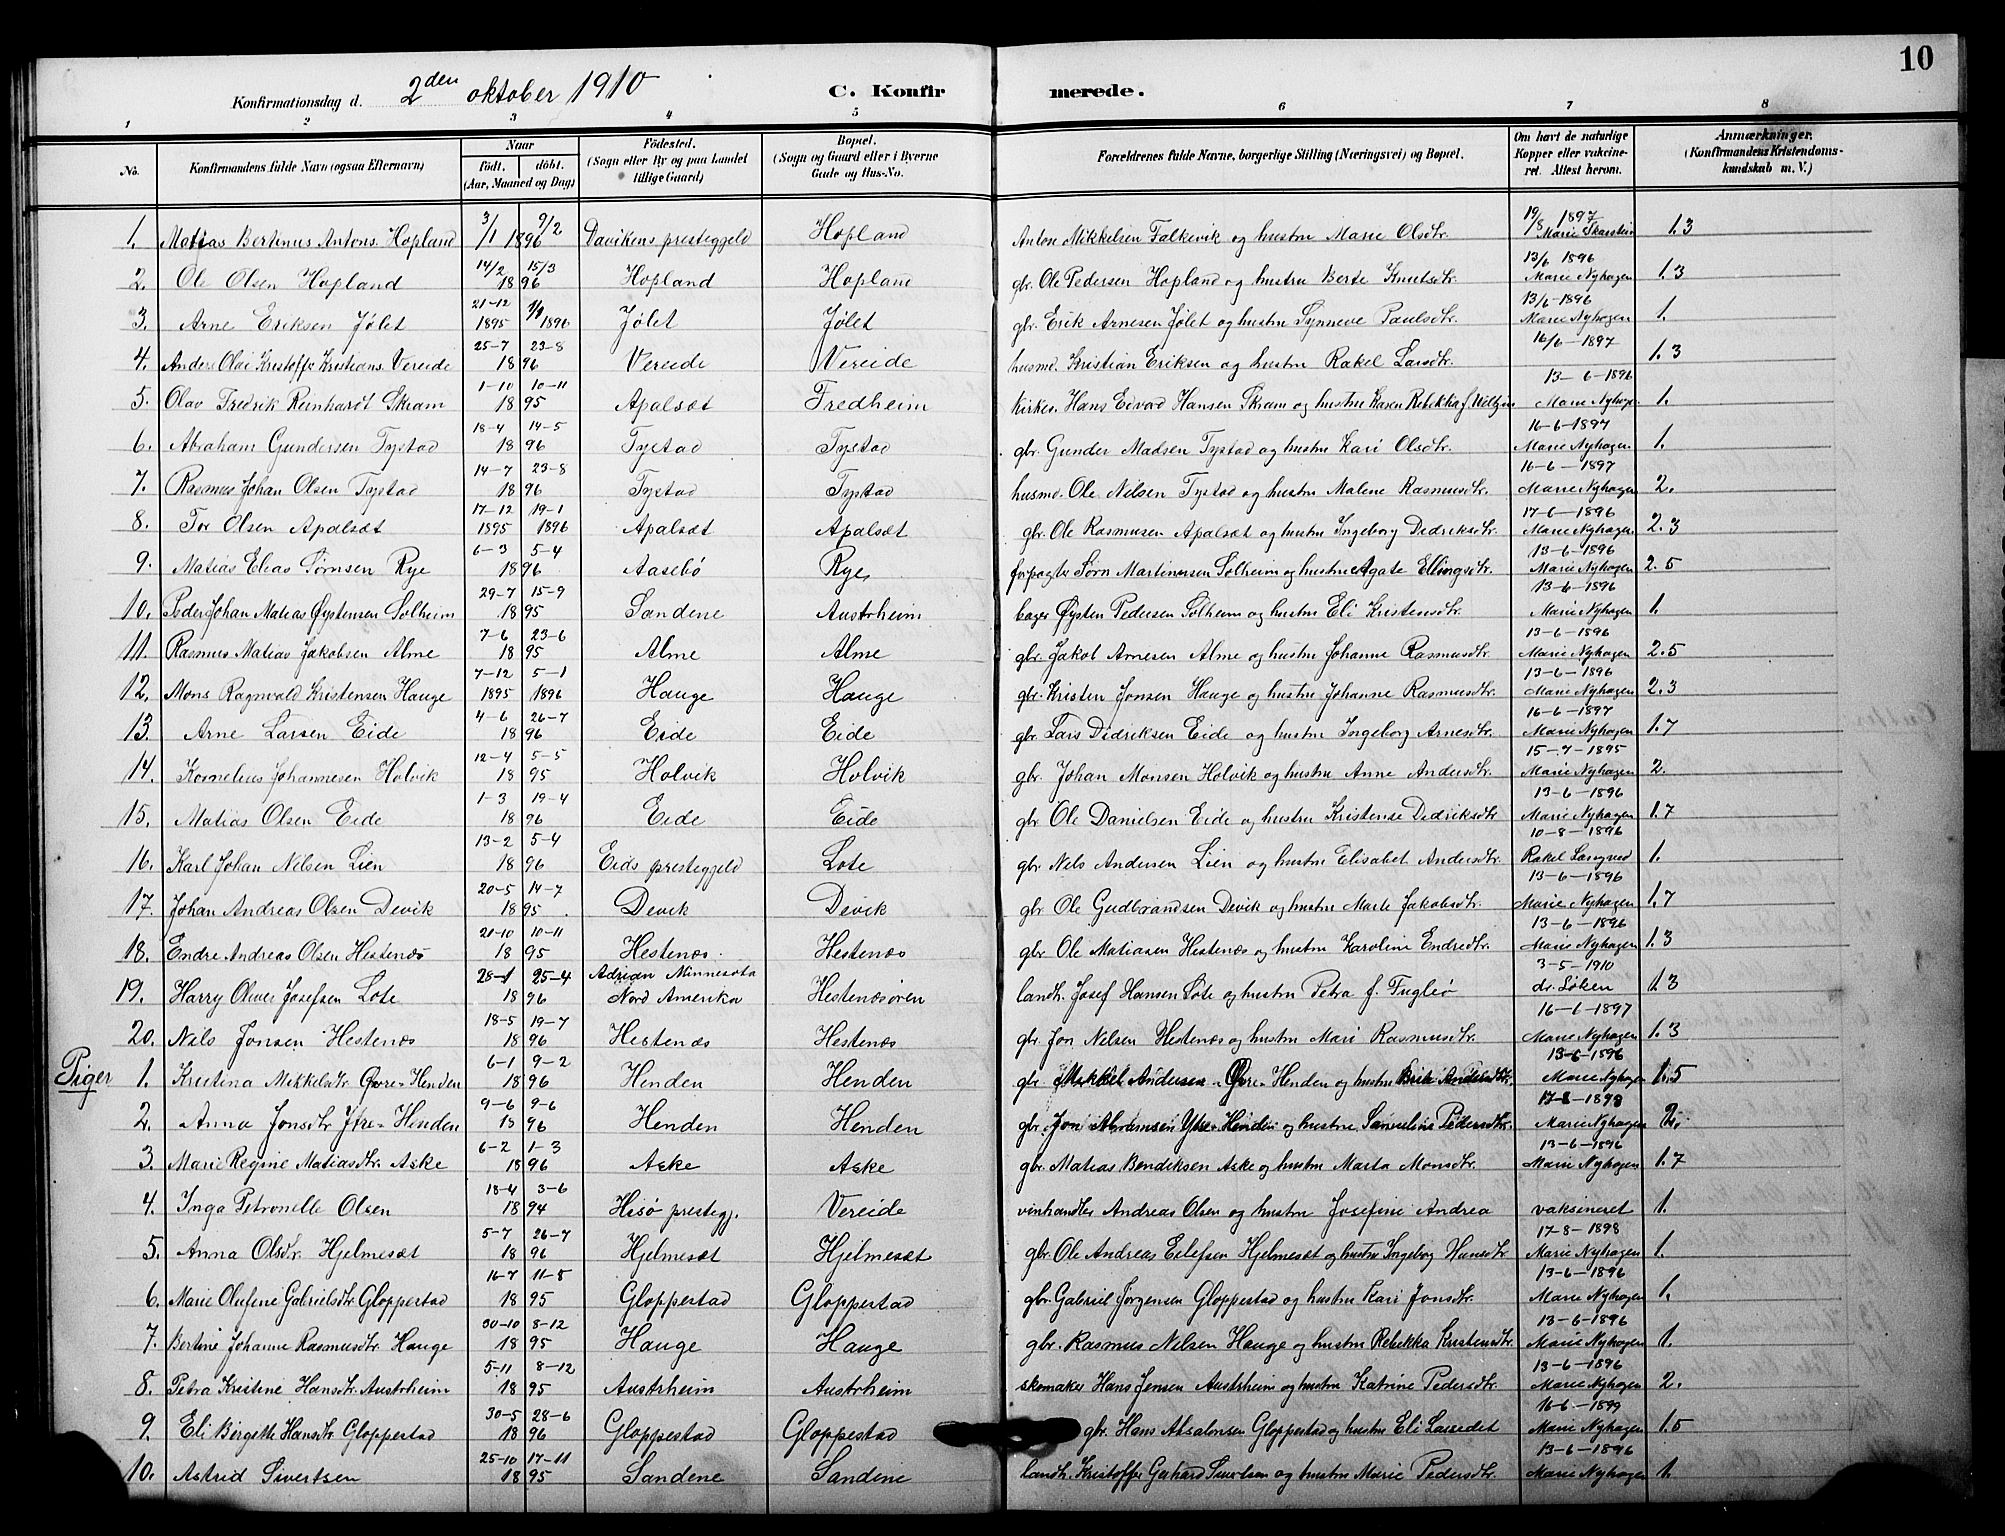 10
Konfirmationsdag d. 2den oktober 1910 C. Konfirmerede.
1 2 3 4 5 6 7 8
No. Konfirmandens fulde Navn (ogsaa Efternavn) Naar Födt. döbt. (Aar, Maaned og Dag) Födested. (Sogn eller By og paa Landet tillige Gaard) Bopæl. (Sogn og Gaard eller i Byerne Gade og Hus-No. Forældrenes fulde Navne, borgerlige Stilling (Næringsvei) og Bopæl. Om havt de naturlige Kopper eller vakcineret. Attest herom. Anmærkninger. (Konfirmandens Kristendomskundskab m. V.)
1. Matias Bertinus Antons. Hopland 3/1 9/2 1896 Davikens prestegjeld Hopland Anton Mikkelsen Falkevik og hustru Marie Olsdtr. 19/8 1897 Marie Skarstein 1.3
2. Ole Olsen Hopland 14/2 15/3 1896 Hopland Hopland gbr. Ole Pedersen Hopland og hustru Berte Knutsdtr. 13/6 1896 Marie Nyhagen 1.3
3. Arne Eriksen Jølet 21-12 1895 1896 Jølet Jølet gbr. Erik Arnesen Jølet og hustru Synneve Paulsdtr. 13/6-1896 Marie Nyhagen 1.
4. Anders Olai Kristoffer Kristians. Vereide 25-7 23-8 1896 Vereide Vereide husmd. Kristian Eriksen og hustru Rakel Larsdtr. 16/6-1897 1.3
5. Olav Fredrik Reinhardt Skram 1-10 10-11 1895 Apalsæt Fredheim kirkes. Hans Eivad Hansen Skram og hustru Karen Rebekka f. 13-6-1896 Marie Nyhagen 1.
6. Abraham Gundersen Tystad 18-4 14-5 1896 Tystad Tystad gbr. Gunder Madsen Tystad og hustru Kari Olsdtr. 16-6-1897 Marie Nyhagen 1.
7. Rasmus Johan Olsen Tystad 14-7 23-8 1896 Tystad Tystad husmd. Ole Nilsen Tystad og hustru Malene Rasmusdtr. 16-6-1897 Marie Nyhagen 2.
8. Tor Olsen Apalsæt 17-12 19-1 1895 1896 Apalsæt Apalsæt gbr. Ole Rasmusen Apalsæt og hustru Ingeborg Didriksdtr. 17-6-1896 Marie Nyhagen 2.3
9. Matias Elias Sørnsen Rye 6-3 5-4 1896 Aasebø Rye forpagter Sørn Martinusen Solheim og hustru Agate Ellingsdtr. 13-6-1896 Marie Nyhagen 2.5
10. Peder Johan Matias Øystensen Solheim 29-7 15-9 1895 Sandene Austrheim bager Øysten Pedersen Solheim og hustru Eli Kristensdtr. 13-6-1896 Marie Nyhagen 1.
11. Rasmus Matias Jakobsen Alme 7-6 23-6 1895 Alme Alme gbr. Jakob Arnesen Alme og hustru Johanne Rasmusdtr. 13-6-1896 Marie Nyhagen 2.5
12. Mons Ragnvald Kristensen Hauge 7-12 5-1 1895 1896 Hauge Hauge gbr. Kristen Jonsen Hauge og hustru Johanne Rasmusdtr. 13-6-1896 Marie Nyhagen 2.3
13. Arne Larsen Eide 4-6 26-7 1896 Eide Eide gbr. Lars Didriksen Eide og hustru Ingeborg Arnesdtr. 16-6-1897 Marie Nyhagen 1.7
14. Kornelius Johannesen Holvik 12-4 5-5 1895 Holvik Holvik gbr. Johan Monsen Holvik og hustru Anne Andersdtr. 15-7-1895 Marie Nyhagen 2.
15. Matias Olsen Eide 1-3 19-4 1896 Eide Eide gbr. Ole Danielsen Eide og hustru Kristense Didriksdtr. 13-6-1896 Marie Nyhagen 1.7
16. Karl Johan Nilsen Lien 13-2 5-4 1896 Eids prestegjeld Lote gbr. Nils Andersen Lien og hustru Elisabet Andersdtr. 10-8-1896 Rakel 1.
17. Johan Andreas Olsen Devik 20-5 14-7 1895 Devik Devik gbr. Ole Gudbrandsen Devik og hustru Marte Jakobsdtr. 13-6-1896 Marie Nyhagen 1.7
18. Endre Andreas Olsen Hestenæs 21-10 10-11 1895 Hestenæs Hestenæs gbr. Ole Matiasen Hestenæs og hustru Karoline Endredtr. 13-6-1896 Marie Nyhagen 1.3
19. Harry Oliver Josefsen Lote 28-1 25-4 1896 Adrian Minnesota Nord Amerika Hestenæsøren landh. Josef Hansen Lote og hustru Petra f. Fugleø 3-5-1910 dr. Løken 1.3
20. Nils Jonsen Hestenæs 18-5 19-7 1896 Hestenæs Hestenæs gbr. Jon Nilsen Hestenæs og hustru Mari Rasmusdtr. 16-6-1897 Marie Nyhagen 1.3
Piger 1. Kristina Mikkelsdtr. Øvre-Henden 6-1 9-2 1896 Henden Henden gbr. Mikkel Andersen Øvre-Henden og hustru Brite Andersdtr. 13-6-1896 Marie Nyhagen 1.5
2. Anna Jonsdtr. Ytre-Henden 9-6 9-6 1896 Henden Henden gbr. Jon Abramsen Ytre-Henden og hustru Samueline Pedersdtr. 17-8-1898 Marie Nyhagen 2.
3. Marie Regine Matiasdtr. Aske 6-2 1-3 1896 Aske Aske gbr. Matias Bendiksen Aske og hustru Marta Monsdtr. 13-6-1896 Marie Nyhagen 1.7
4. Inga Petronelle Olsen 18-4 3-6 1894 Hisø prestegj. Vereide vinhandler Andreas Olsen og hustru Josefine Andrea vaksineret 1.
5. Anna Olsdtr. Hjelmesæt 5-7 26-7 1896 Hjelmesæt Hjelmesæt gbr. Ole Andreas Eilefsen Hjelmesæt og hustru Ingeborg Hansdtr 17-8-1898 Marie Nyhagen 1.
6. Marie Olufine Gabrielsdtr. Gloppestad 16-7 11-8 1895 Gloppestad Gloppestad gbr. Gabriel Jørgensen Gloppestad og hustru Kari Jonsdtr. 13-6-1896 Marie Nyhagen 1.
7. Bertine Johanne Rasmusdtr. Hauge 30-10 8-12 1895 Hauge Hauge gbr. Rasmus Nilsen Hauge og hustru Rebekka Kristensdtr 13-6-1896 Marie Nyhagen 1.
8. Petra Kristine Hansdtr. Austrheim 5-11 8-12 1895 Austrheim Austrheim skomaker Hans Jensen Austrheim og hustru Katrine Pedersdtr. 13-6-1896 Marie Nyhagen 2.
9. Eli Birgitte Hansdtr. Gloppestad 30-5 28-6 1896 Gloppestad Gloppestad gbr. Hans Absalonsen Gloppestad og hustru Eli Larsedet 16-6-1899 Marie Nyhagen 1.5
10. Astrid Sivertsen 25-10 17-11 1895 Sandene Sandene landh. Kristoffer Gerhard Sivertsen og hustru Marie Pedersdtr. 13-6-1896 Marie Nyhagen 1.